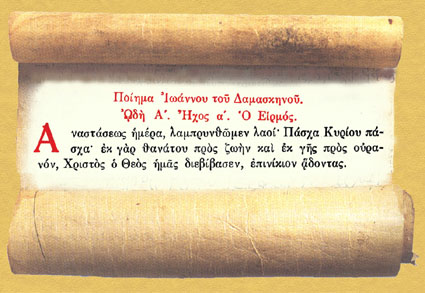 Ποίημα Ἰωάννου τοῦ Δαμασκηνοῦ.
ᾨδὴ Α΄. Ἦχος α΄. Ὁ Εἱρμός.
Ἀναστάσεως ἡμέρα, λαμπρυνθῶμεν λαοί· Πάσχα Κυρίου πά-
σχα· ἐκ γὰρ θανάτου πρὸς ζωὴν καὶ ἐκ γῆς πρὸς οὐρα-
νόν, Χριστὸς ὁ Θεὸς ἡμᾶς διεβίβασεν, ἐπινίκιον ᾄδοντας.